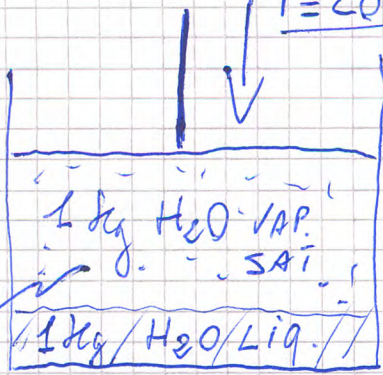 1 Kg H₂O VAP.
SAT
1 Kg H₂O Liq.